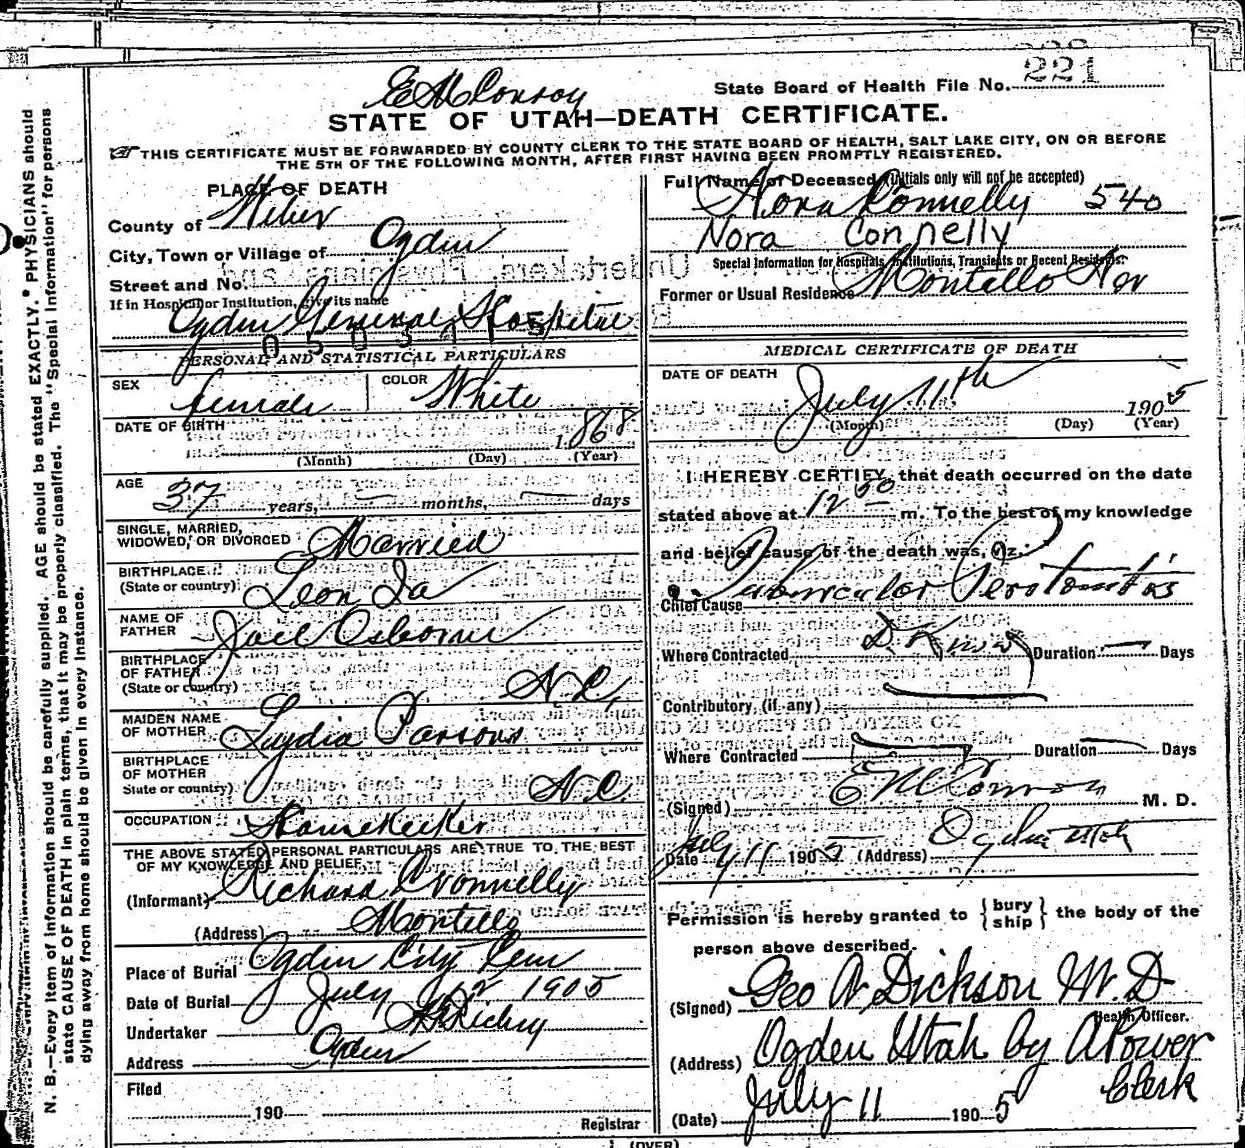 221
State Board of Health File No.
E M Conroy
STATE OF UTAH—DEATH CERTIFICATE.
THIS CERTIFICATE MUST BE FORWARDED BY COUNTY CLERK TO THE STATE BOARD OF HEALTH, SALT LAKE CITY, ON OR BEFORE
THE 5TH OF THE FOLLOWING MONTH, AFTER FIRST HAVING BEEN PROMPTLY REGISTERED.
PLACE OF DEATH
County of Weber
City, Town or Village of Ogden
Street and No.
If in Hospital or Institution, give its name
Ogden General Hospital
PERSONAL AND STATISTICAL PARTICULARS
SEX female COLOR White
DATE OF BIRTH 1868
(Month) (Day) (Year)
AGE 37 years, — months, — days
SINGLE, MARRIED,
WIDOWED, OR DIVORCED Married
BIRTHPLACE
(State or country) Leon Ia
NAME OF
FATHER Joel Osborne
BIRTHPLACE
OF FATHER
(State or country) N.C.
MAIDEN NAME
OF MOTHER Lydia Parsons
BIRTHPLACE
OF MOTHER
State or country) N.C.
OCCUPATION Housekeeker
THE ABOVE STATED PERSONAL PARTICULARS ARE TRUE TO THE BEST
OF MY KNOWLEDGE AND BELIEF
(Informant) Richard Connelly
(Address) Montello
Place of Burial Ogden City Cem
Date of Burial July 12 1905
Undertaker Richey
Address Ogden
Filed
190
Registrar
Full Name of Deceased (Initials only will not be accepted)
Nora Connelly 540
Nora Connelly
Special Information for Hospitals, Institutions, Transients or Recent Residents:
Former or Usual Residence Montello Nev
MEDICAL CERTIFICATE OF DEATH
DATE OF DEATH
July 11th 1905
(Month) (Day) (Year)
I HEREBY CERTIFY, that death occurred on the date
stated above at 12 m. To the best of my knowledge
and belief cause of the death was, viz:
Chief Cause Tubercular Peritonitis
Where Contracted D. Know Duration — Days
Contributory, (if any)
Where Contracted Duration — Days
(Signed) E M Conroy M. D.
Date July 11 1905 (Address) Ogden Utah
Permission is hereby granted to {bury ship} the body of the
person above described.
(Signed) Geo A. Dickson M.D
Health Officer.
(Address) Ogden Utah by A Power
Clerk
(Date) July 11 1905
(OVER)
N. B.—Every item of information should be carefully supplied. AGE should be stated EXACTLY. PHYSICIANS should
state CAUSE OF DEATH in plain terms, that it may be properly classified. The "Special Information" for persons
dying away from home should be given in every instance.